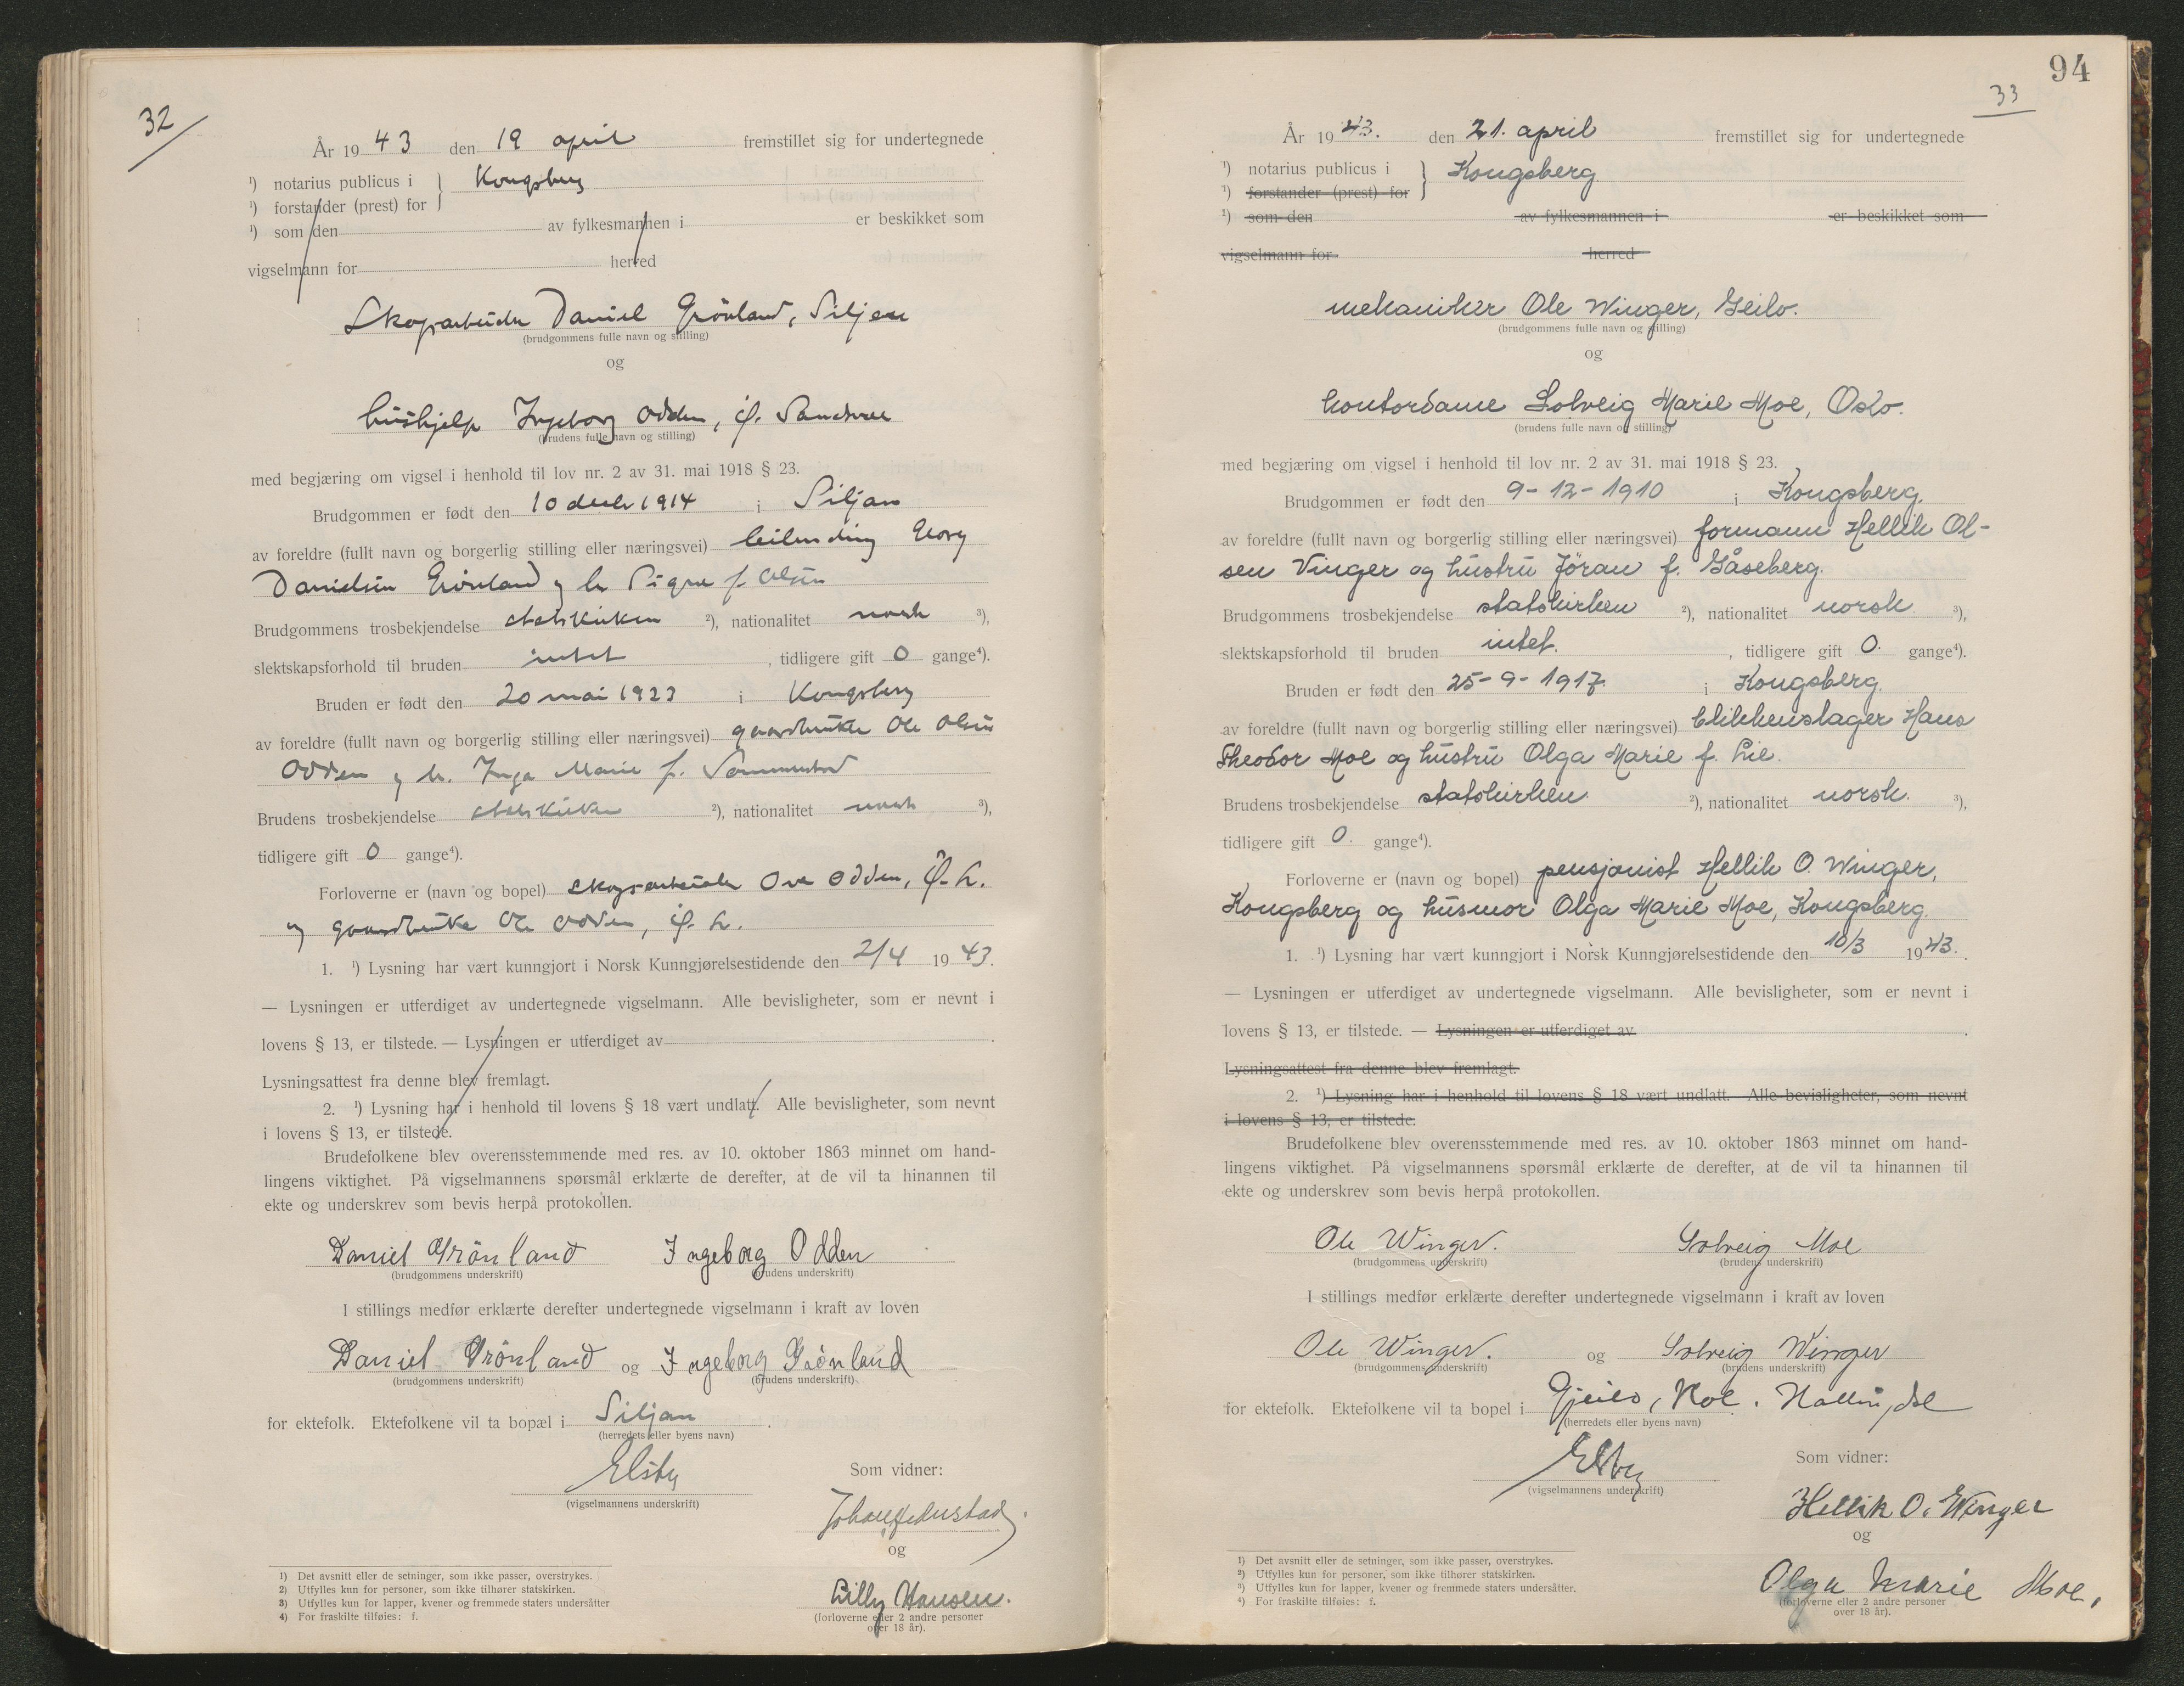 32
År 1943 den 19 april fremstillet sig for undertegnede
¹) notarius publicus i } Kongsberg
¹) forstander (prest) for
¹) som den av fylkesmannen i er beskikket som
vigselmann for herred
Skogsarbeider Daniel Grönland, Siljan
(brudgommens fulle navn og stilling)
og
hushjelp Ingeborg Odden, Ø. Sandsvær
(brudens fulle navn og stilling)
med begjæring om vigsel i henhold til lov nr. 2 av 31. mai 1918 § 23.
Brudgommen er født den 10 desbr 1914 i Siljan
av foreldre (fullt navn og borgerlig stilling eller næringsvei) leilending Georg
Danielsen Grönland og h. Signe f. Olsen
Brudgommens trosbekjendelse statskirken ²), nationalitet norsk ³),
slektskapsforhold til bruden intet, tidligere gift 0 gange⁴).
Bruden er født den 20 mai 1923 i Kongsberg
av foreldre (fullt navn og borgerlig stilling eller næringsvei) gaardbruker Ole Olsen
Odden og h. Inga Marie f.
Brudens trosbekjendelse statskirken ²), nationalitet norsk ³),
tidligere gift 0 gange⁴).
Forloverne er (navn og bopel) skogsarbeider Ove Odden, Ø. S.
og gaardbruker Ole Odden, Ø. S.
1. ¹) Lysning har vært kunngjort i Norsk Kunngjørelsestidende den 2/4 1943.
— Lysningen er utferdiget av undertegnede vigselmann. Alle bevisligheter, som er nevnt i
lovens § 13, er tilstede. — Lysningen er utferdiget av .
Lysningsattest fra denne blev fremlagt.
2. ¹) Lysning har i henhold til lovens § 18 vært undlatt. Alle bevisligheter, som nevnt
i lovens § 13, er tilstede.
Brudefolkene blev overensstemmende med res. av 10. oktober 1863 minnet om hand-
lingens viktighet. På vigselmannens spørsmål erklærte de derefter, at de vil ta hinannen til
ekte og underskrev som bevis herpå protokollen.
Daniel Grönland Ingeborg Odden
(brudgommens underskrift) (brudens underskrift)
I stillings medfør erklærte derefter undertegnede vigselmann i kraft av loven
Daniel Grönland og Ingeborg Grönland
(brudgommens underskrift) (brudens underskrift)
for ektefolk. Ektefolkene vil ta bopæl i Siljan .
(herredets eller byens navn)
Elsby
(vigselmannens underskrift)
Som vidner:
og
Lilly Hansen.
(forloverne eller 2 andre personer
over 18 år).
1) Det avsnitt eller de setninger, som ikke passer, overstrykes.
2) Utfylles kun for personer, som ikke tilhører statskirken.
3) Utfylles kun for lapper, kvener og fremmede staters undersåtter
4) For fraskilte tilføies: f.
94
33
År 1943. den 21. april fremstillet sig for undertegnede
¹) notarius publicus i } Kongsberg
¹) forstander (prest) for
¹) som den av fylkesmannen i er beskikket som
vigselmann for herred
mekaniker Ole Winger, Geilo.
(brudgommens fulle navn og stilling)
og
kontordame Solveig Marie Moe, Oslo.
(brudens fulle navn og stilling)
med begjæring om vigsel i henhold til lov nr. 2 av 31. mai 1918 § 23.
Brudgommen er født den 9-12-1910 i Kongsberg.
av foreldre (fullt navn og borgerlig stilling eller næringsvei) formann Hellik Ol-
sen Vinger og hustru Jöran f. Gåseberg.
Brudgommens trosbekjendelse statskirken ²), nationalitet norsk ³),
slektskapsforhold til bruden intet., tidligere gift 0. gange⁴).
Bruden er født den 25-9-1917. i Kongsberg.
av foreldre (fullt navn og borgerlig stilling eller næringsvei) blikkenslager Hans
Theodor Moe og hustru Olga Marie f. Lie.
Brudens trosbekjendelse statskirken ²), nationalitet norsk. ³),
tidligere gift 0. gange⁴).
Forloverne er (navn og bopel) pensjonist Hellik O. Winger,
Kongsberg og husmor Olga Marie Moe, Kongsberg.
1. ¹) Lysning har vært kunngjort i Norsk Kunngjørelsestidende den 10/3 1943.
— Lysningen er utferdiget av undertegnede vigselmann. Alle bevisligheter, som er nevnt i
lovens § 13, er tilstede. — Lysningen er utferdiget av .
Lysningsattest fra denne blev fremlagt.
2. ¹) Lysning har i henhold til lovens § 18 vært undlatt. Alle bevisligheter, som nevnt
i lovens § 13, er tilstede.
Brudefolkene blev overensstemmende med res. av 10. oktober 1863 minnet om hand-
lingens viktighet. På vigselmannens spørsmål erklærte de derefter, at de vil ta hinannen til
ekte og underskrev som bevis herpå protokollen.
Ole Winger. Solveig Moe
(brudgommens underskrift) (brudens underskrift)
I stillings medfør erklærte derefter undertegnede vigselmann i kraft av loven
Ole Winger. og Solveig Winger
(brudgommens underskrift) (brudens underskrift)
for ektefolk. Ektefolkene vil ta bopel i Gjeilo, Hol. Hallingdal
(herredets eller byens navn)
Elsby
(vigselmannens underskrift)
Som vidner:
Hellik O. Winger
og
Olga Marie Moe.
(forloverne eller 2 andre personer
over 18 år).
1) Det avsnitt eller de setninger, som ikke passer, overstrykes.
2) Utfylles kun for personer, som ikke tilhører statskirken.
3) Utfylles kun for lapper, kvener og fremmede staters undersåtter.
4) For fraskilte tilføies: f.